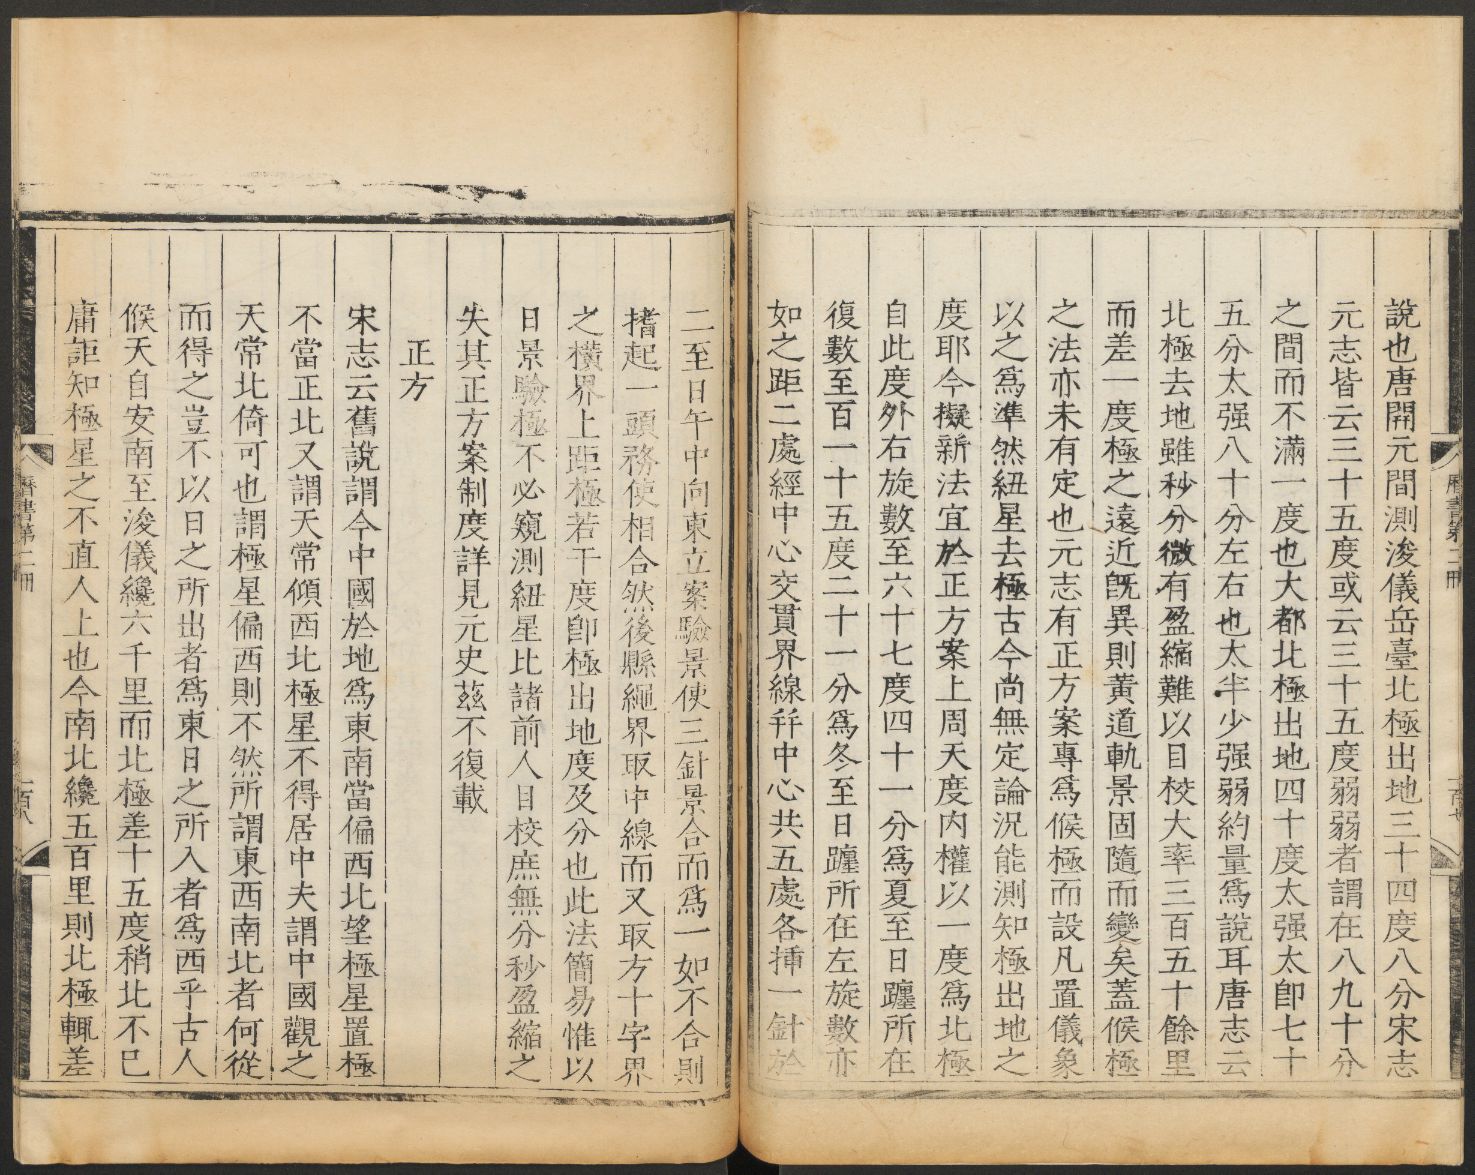 說也唐開元間測浚儀岳臺北極出地三十四度八分宋志
元志皆云三十五度或云三十五度弱弱者謂在八九十分
之間而不滿一度也大都北極出地四十度太强太卽七十
五分太强八十分左右也太半少强弱約量爲說耳唐志云
北極去地雖秒分微有盈縮難以目校大率三百五十餘里
而差一度極之遠近旣異則黃道軌景固隨而變矣蓋候極
之法亦未有定也元志有正方案專爲候極而設凡置儀象
以之爲準然紐星去極古今尚無定論況能測知極出地之
度耶今擬新法宜於正方案上周天度內權以一度爲北極
自此度外右旋數至六十七度四十一分爲夏至日躔所在
復數至百一十五度二十一分爲冬至日躔所在左旋數亦
如之距二處經中心交貫界線幷中心共五處各揷一針於
二至日午中向東立案驗景使三針景合而爲一如不合則
揩起一頭務使相合然後縣繩界取中線而又取方十字界
之橫界上距極若干度卽極出地度及分也此法簡易惟以
日景驗極不必窺測紐星比諸前人目校庶無分秒盈縮之
失其正方案制度詳見元史茲不復載
正方
宋志云舊說謂今中國於地爲東南當偏西北望極星置極
不當正北又謂天常傾西北極星不得居中夫謂中國觀之
天常北倚可也謂極星偏西則不然所謂東西南北者何從
而得之豈不以日之所出者爲東日之所入者爲西乎古人
候天自安南至浚儀纔六千里而北極差十五度稍北不已
庸詎知極星之不直人上也今南北纔五百里則北極輒差
曆書第二冊
曆書第二冊
一百八